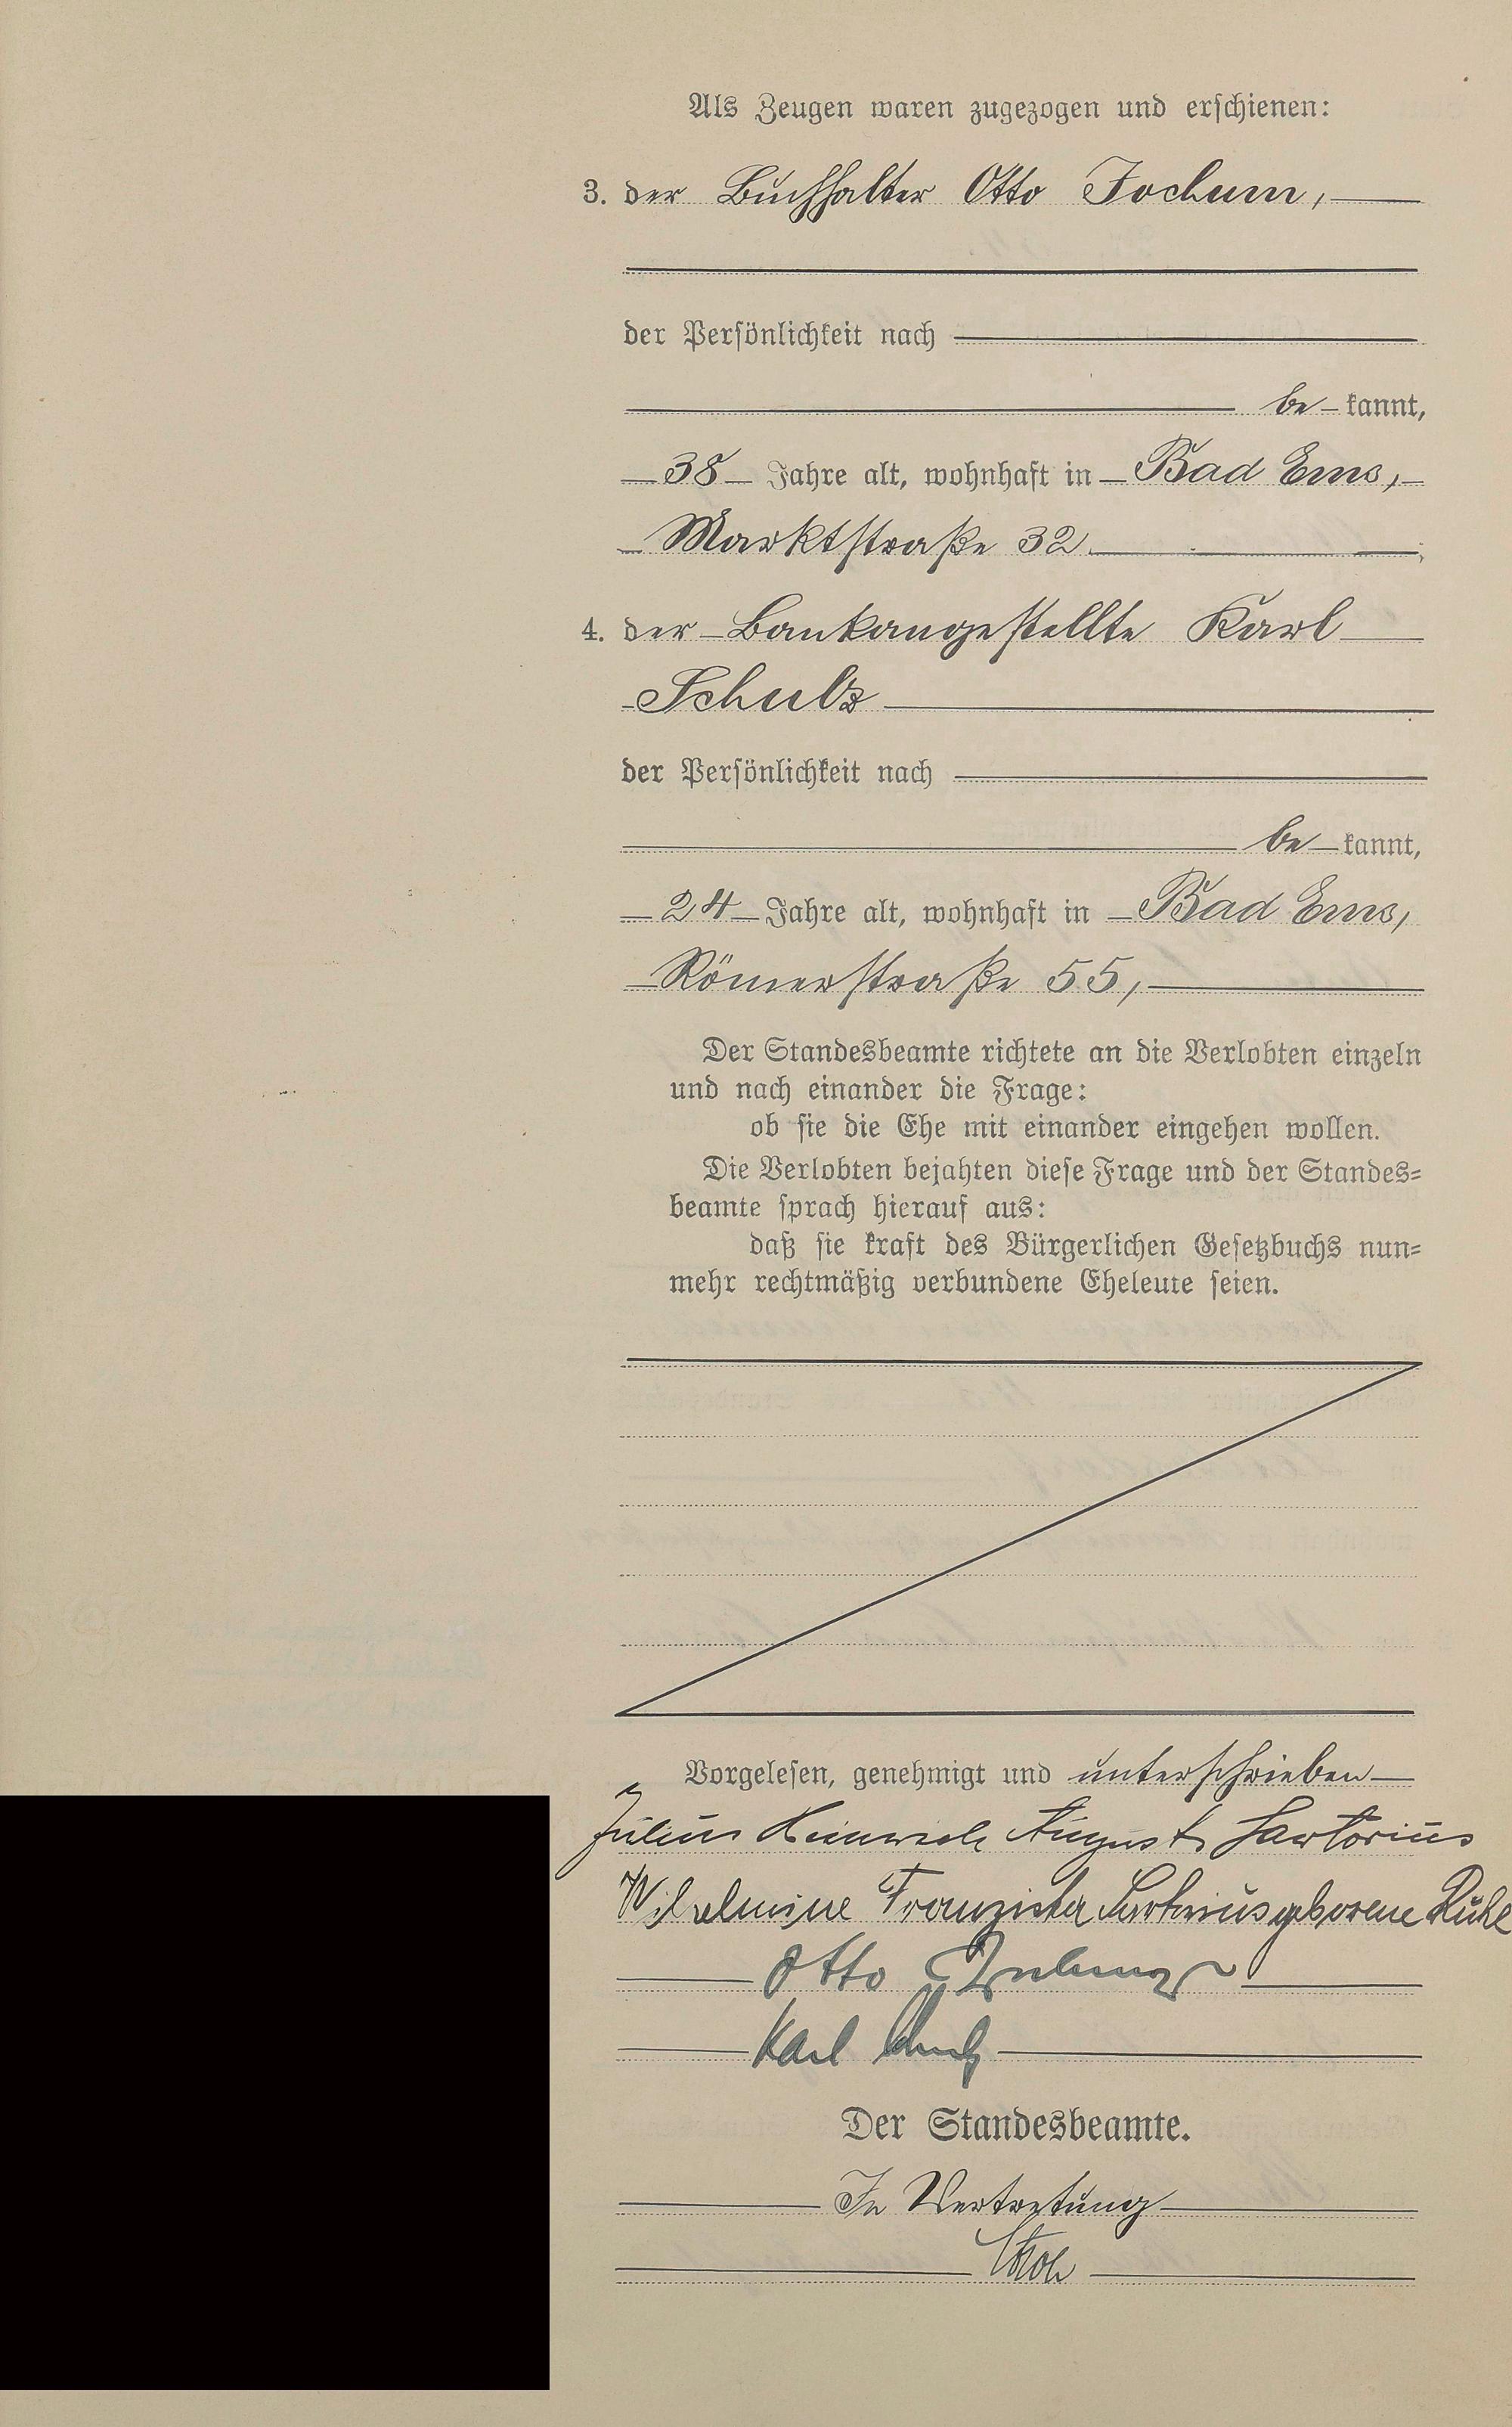 Als Zeugen waren zugezogen und erschienen:
3. der Buchhalter Otto Jochum,
der Persönlichkeit nach
be-kannt,
38 Jahre alt, wohnhaft in Bad Ems,
Marktstraße 32 ;
4. der Bankangestellte Karl
Schulz
der Persönlichkeit nach
be-kannt,
24 Jahre alt, wohnhaft in Bad Ems,
Römerstraße 55,
Der Standesbeamte richtete an die Verlobten einzeln
und nach einander die Frage:
ob sie die Ehe mit einander eingehen wollen.
Die Verlobten bejahten diese Frage und der Standes=
beamte sprach hierauf aus:
daß sie kraft des Bürgerlichen Gesetzbuchs nun=
mehr rechtmäßig verbundene Eheleute seien.
Vorgelesen, genehmigt und unterschrieben
Julius Heinrich August Sartorius
Wilhelmine Franziska Sartorius geborene Rühl
Otto Jochum
Karl Schulz
Der Standesbeamte.
In Vertretung